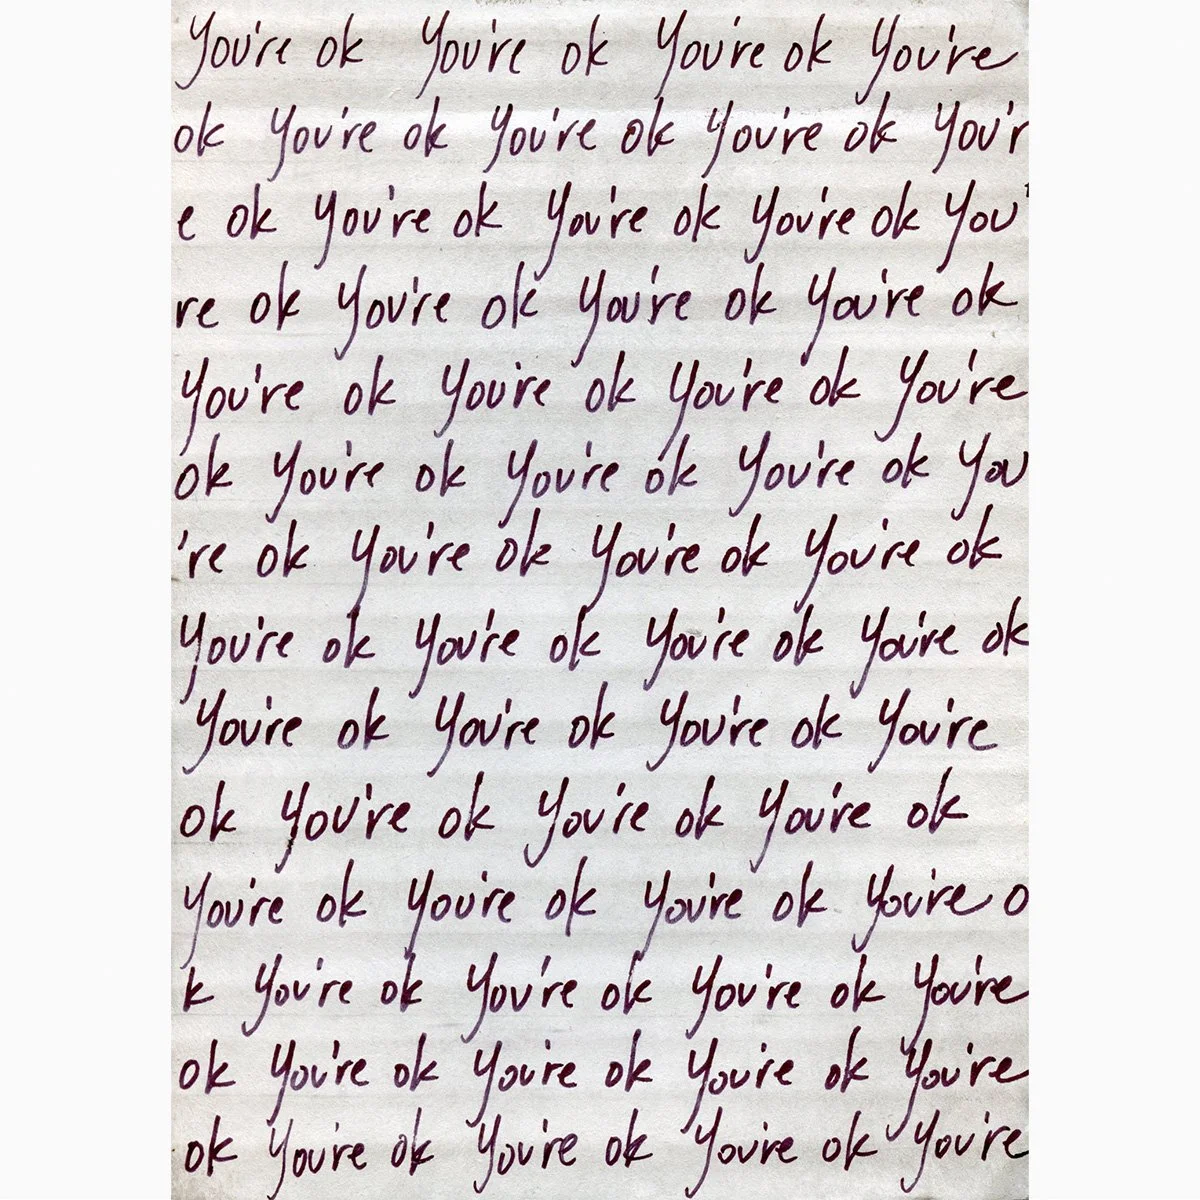 You're ok You're ok You're ok You're
ok You're ok You're ok You're ok You'r
e ok You're ok You're ok You're ok You'
re ok You're ok You're ok You're ok
You're ok You're ok You're ok You're
ok You're ok You're ok You're ok You
're ok You're ok You're ok You're ok
You're ok You're ok You're ok You're ok
You're ok You're ok You're ok You're
ok You're ok You're ok You're ok
You're ok You're ok You're ok You're o
k You're ok You're ok You're ok You're
ok You're ok You're ok You're ok You're
ok You're ok You're ok You're ok You're